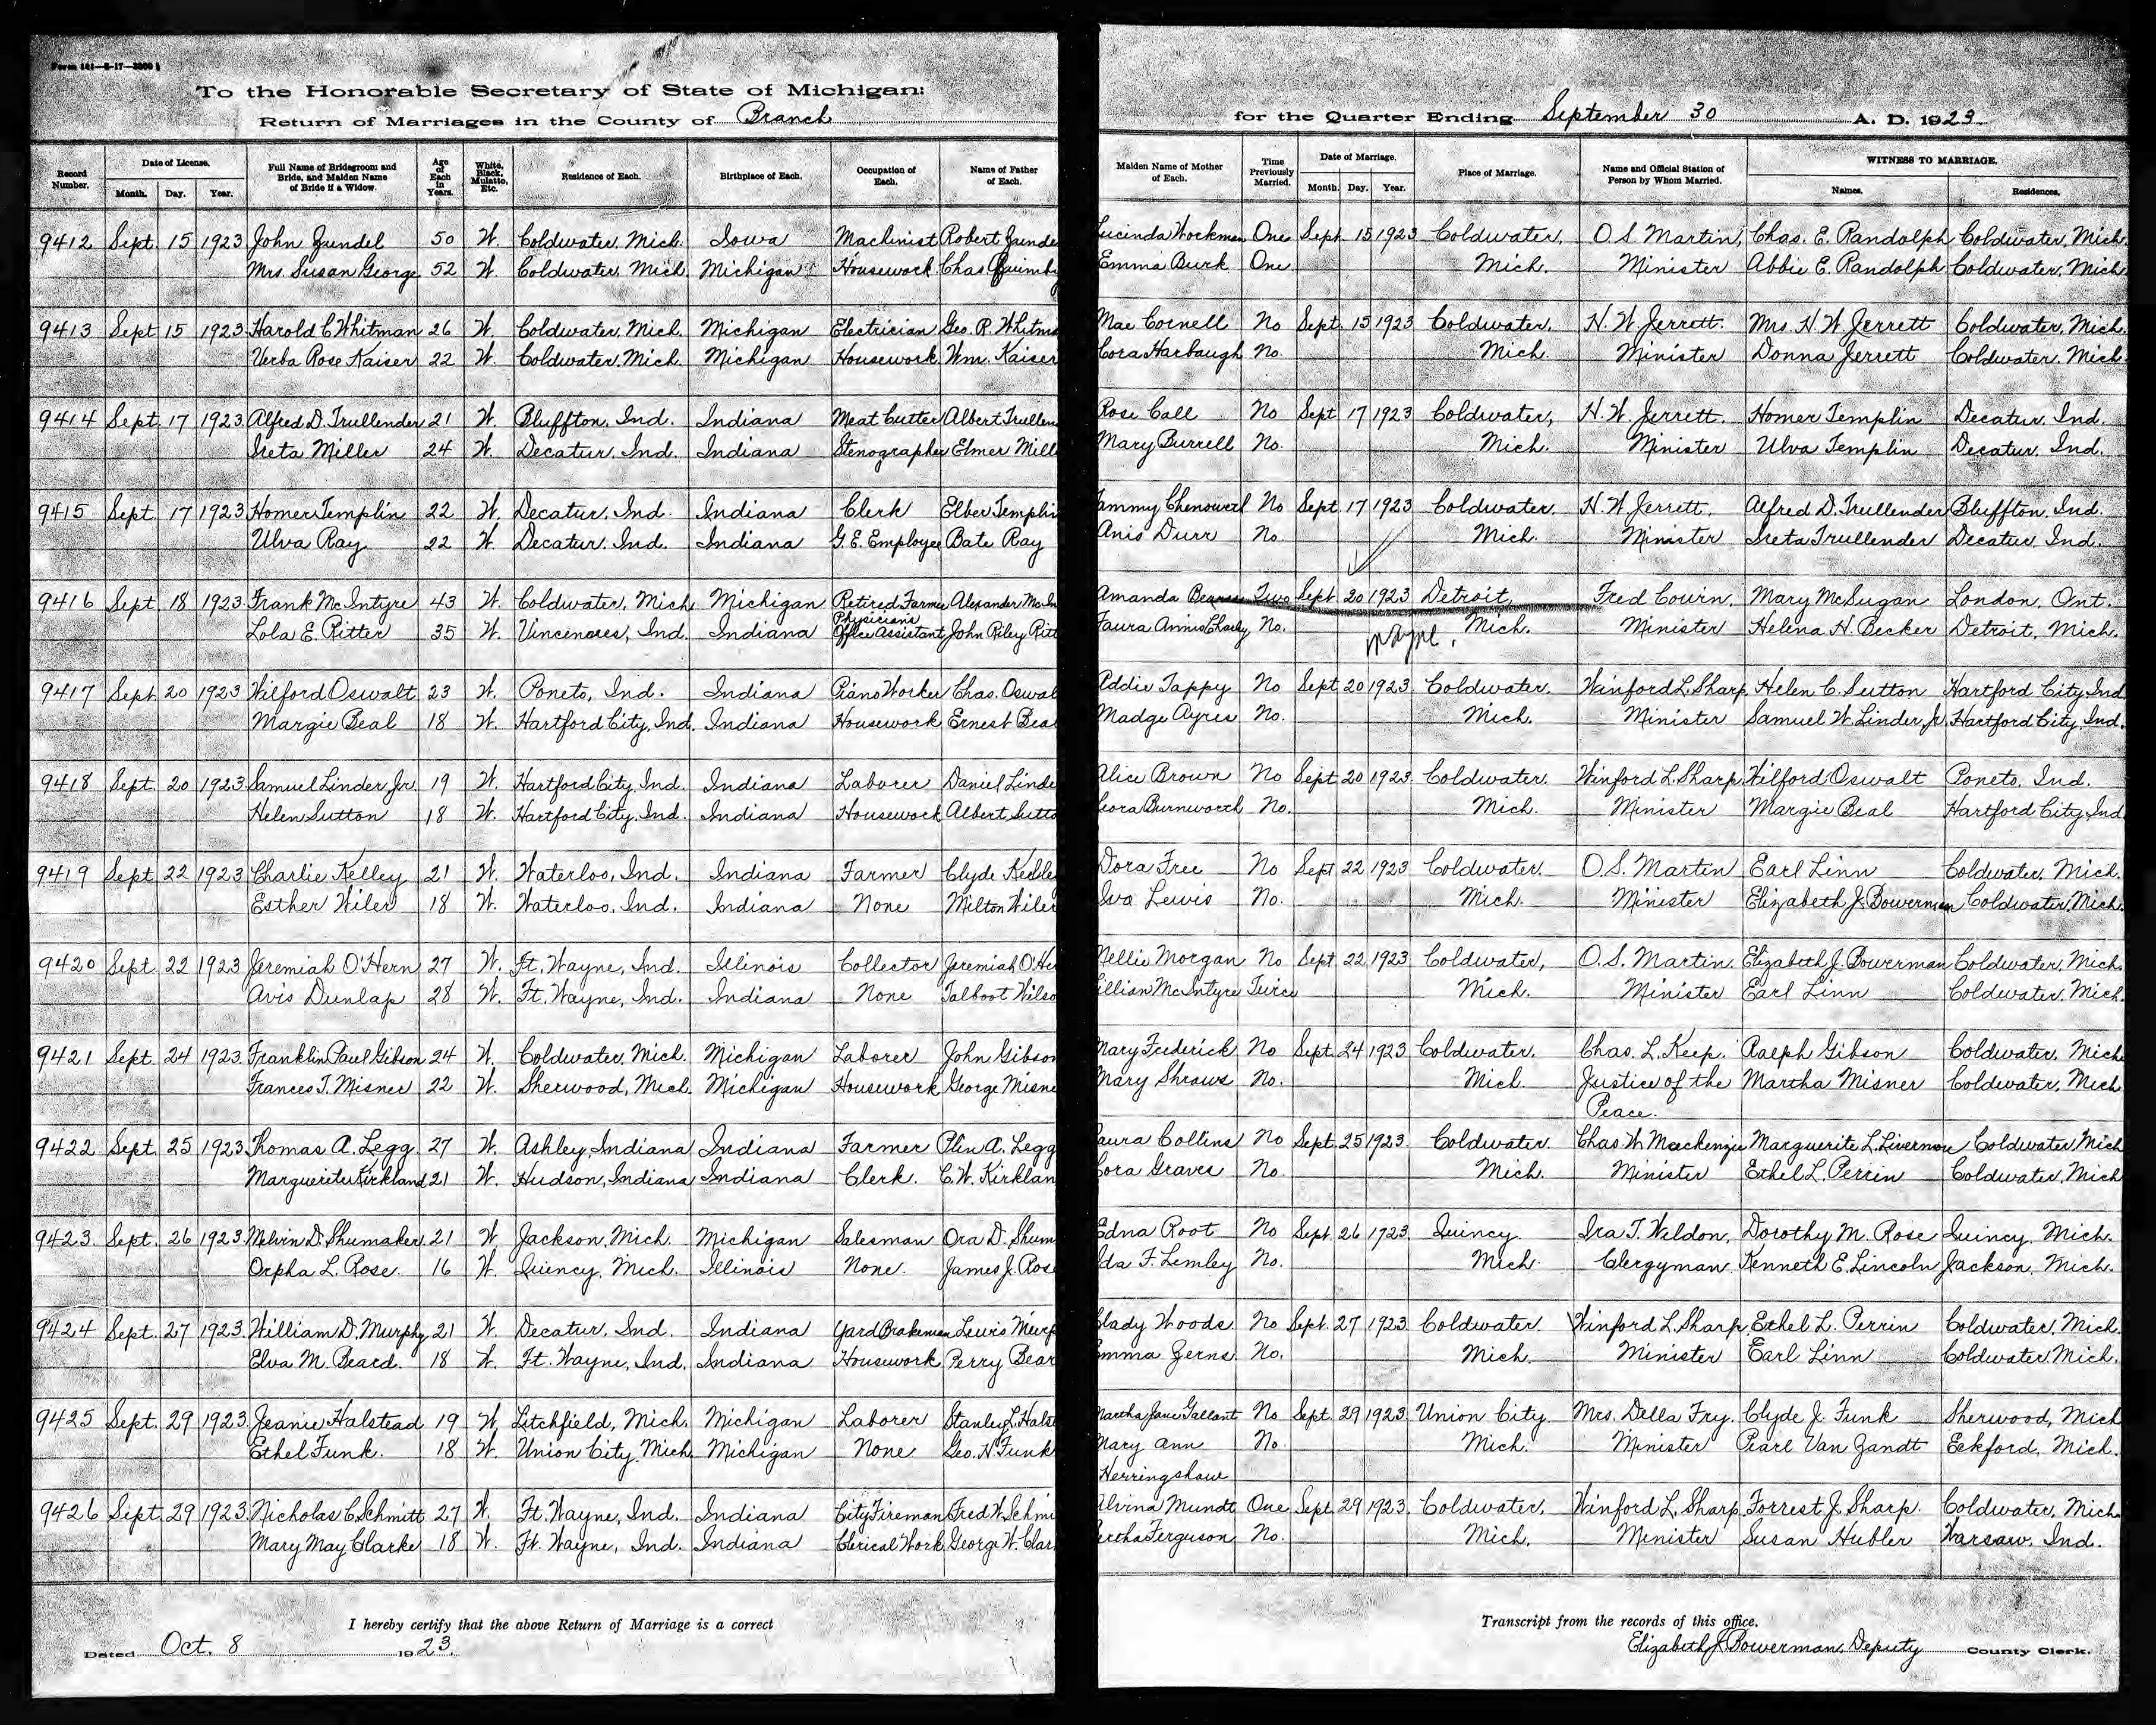 Form 141—8-17—3000
To the Honorable Secretary of State of Michigan:
Return of Marriages in the County of Branch
for the Quarter Ending September 30 A. D. 1923
Record Number. Date of License. Month. Day. Year. Full Name of Bridegroom and Bride, and Maiden Name of Bride if a Widow. Age of Each in Years. White, Black, Mulatto, Etc. Residence of Each. Birthplace of Each. Occupation of Each. Name of Father of Each.
Maiden Name of Mother of Each. Time Previously Married. Date of Marriage. Month. Day. Year. Place of Marriage. Name and Official Station of Person by Whom Married. WITNESS TO MARRIAGE. Names. Residences.
9412 Sept. 15 1923 John Gundel 50 W. Coldwater, Mich. Iowa Machinist Robert Gunde Lucinda Workman One Sept. 15 1923 Coldwater, O. S. Martin, Chas. E. Randolph Coldwater, Mich.
Mrs. Susan George 52 W. Coldwater, Mich. Michigan Housework Chas Quimby Emma Burk One Mich. Minister Abbie E. Randolph Coldwater, Mich.
9413 Sept 15 1923 Harold C Whitman 26 W. Coldwater, Mich. Michigan Electrician Geo. R. Whitma Mae Cornell No Sept. 15 1923 Coldwater, H. W. Jerrett. Mrs. H W Jerrett Coldwater, Mich.
Verba Rose Kaiser 22 W. Coldwater, Mich. Michigan Housework Wm. Kaiser Cora Harbaugh No. Mich. Minister Donna Jerrett Coldwater, Mich.
9414 Sept. 17 1923 Alfred D. Trullender 21 W. Bluffton, Ind. Indiana Meat Cutter Albert Trullen Rose Call No Sept 17 1923 Coldwater, H. W. Jerrett. Homer Templin Decatur, Ind.
Ireta Miller 24 W. Decatur, Ind. Indiana Stenographer Elmer Mill Mary Burrell No. Mich. Minister Ulva Templin Decatur, Ind.
9415 Sept. 17 1923 Homer Templin 22 W. Decatur, Ind. Indiana Clerk Elber Templin Tammy Chenowerl No Sept 17 1923 Coldwater. H. W. Jerrett. Alfred D. Trullender Bluffton, Ind.
Ulva Ray 22 W. Decatur, Ind. Indiana G. E. Employee Bate Ray Anis Durr No. Mich. Minister Ireta Trullender Decatur, Ind.
9416 Sept. 18 1923 Frank McIntyre 43 W. Coldwater, Mich. Michigan Retired Farmer Alexander McIn Amanda Two Sept 20 1923 Detroit, Fred Cowin. Mary McSugan London, Ont.
Lola E. Ritter 35 W. Vincennes, Ind. Indiana Physicians Office Assistant John Riley Ritt No. Wayne. Mich. Minister Helena H. Becker Detroit, Mich.
9417 Sept. 20 1923 Wilford Oswalt 23 W. Poneto, Ind. Indiana Piano Worker Chas. Oswal Addie Tappy No Sept 20 1923 Coldwater. Winford L. Sharp. Helen C. Sutton Hartford City, Ind
Margie Beal 18 W. Hartford City, Ind. Indiana Housework Ernest Bea Madge Ayres No. Mich. Minister Samuel W. Linder, Jr. Hartford City, Ind.
9418 Sept. 20 1923 Samuel Linder Jr. 19 W. Hartford City, Ind. Indiana Laborer Daniel Linde Alice Brown No Sept 20 1923 Coldwater. Winford L. Sharp. Wilford Oswalt Poneto, Ind.
Helen Sutton 18 W. Hartford City, Ind. Indiana Housework Albert Sutto Burnworth No. Mich. Minister Margie Beal Hartford City, Ind
9419 Sept 22 1923 Charlie Kelley 21 W. Waterloo, Ind. Indiana Farmer Clyde Kelley Dora Free No Sept 22 1923 Coldwater. O. S. Martin Earl Linn Coldwater, Mich.
Esther Wiler 18 W. Waterloo, Ind. Indiana None Milton Wiler Iva Lewis No. Mich. Minister Elizabeth J. Bowerman Coldwater, Mich.
9420 Sept. 22 1923 Jeremiah O'Hern 27 W. Ft. Wayne, Ind. Illinois Collector Jeremiah O'He Nellie Morgan No Sept. 22 1923 Coldwater, O. S. Martin. Elizabeth J. Bowerman Coldwater, Mich.
Avis Dunlap 28 W. Ft. Wayne, Ind. Indiana None Talboot Wilso Lillian McIntyre Twice Mich. Minister Earl Linn Coldwater, Mich.
9421 Sept. 24 1923 Franklin Paul Gibson 24 W. Coldwater, Mich. Michigan Laborer John Gibson Mary Frederick No Sept. 24 1923 Coldwater. Chas. L. Keep. Ralph Gibson Coldwater, Mich
Frances T. Misner 22 W. Sherwood, Mich. Michigan Housework George Misne Mary Shraws No. Mich. Justice of the Martha Misner Coldwater, Mich
Peace.
9422 Sept. 25 1923 Thomas A. Legg 27 W. Ashley, Indiana Indiana Farmer Olin A. Legg Laura Collins No Sept. 25 1923. Coldwater. Chas W. Mackenzie Marguerite L. Livermore Coldwater, Mich
Marguerite Kirkland 21 W. Hudson, Indiana Indiana Clerk. C. W. Kirklan Cora Graves No. Mich. Minister Ethel L. Perrin Coldwater, Mich
9423 Sept. 26 1923 Melvin D. Shumaker 21 W Jackson, Mich. Michigan Salesman Ora D. Shum Edna Root No Sept. 26 1923. Quincy Ira T. Weldon, Dorothy M. Rose Quincy, Mich.
Orpha L. Rose. 16 W. Quincy, Mich. Illinois None. James J. Rose Ida F. Lemley No. Mich. Clergyman. Kenneth E. Lincoln Jackson, Mich.
9424 Sept. 27 1923 William D. Murphy 21 W. Decatur, Ind. Indiana Yard Brakeman Lewis Murp Glady Woods No Sept. 27 1923. Coldwater. Winford L. Sharp. Ethel L. Perrin Coldwater, Mich.
Elva M. Beard. 18 W. Ft. Wayne, Ind. Indiana Housework Perry Bear Emma Zerns. No. Mich. Minister Earl Linn Coldwater, Mich.
9425 Sept. 29 1923. Jeanie Halstead 19 W. Litchfield, Mich. Michigan Laborer Stanley L. Halst Martha Jane Gallant No Sept. 29 1923. Union City. Mrs. Della Fry. Clyde J. Funk Sherwood, Mich
Ethel Funk. 18 W. Union City, Mich. Michigan None Geo. H. Funk Mary Ann No. Mich. Minister Pearl Van Zandt Eckford, Mich.
Herringshaw
9426 Sept. 29 1923. Nicholas C. Schmitt 27 W. Ft. Wayne, Ind. Indiana City Fireman Fred W. Schmi Alvina Mundt One Sept. 29 1923. Coldwater. Winford L. Sharp Forrest J. Sharp. Coldwater, Mich
Mary May Clarke 18 W. Ft. Wayne, Ind. Indiana Clerical Work George W. Clar Ferguson No. Mich. Minister Susan Hubler Warsaw, Ind.
I hereby certify that the above Return of Marriage is a correct
Transcript from the records of this office.
Dated Oct. 8 1923.
Elizabeth J. Bowerman, Deputy County Clerk.